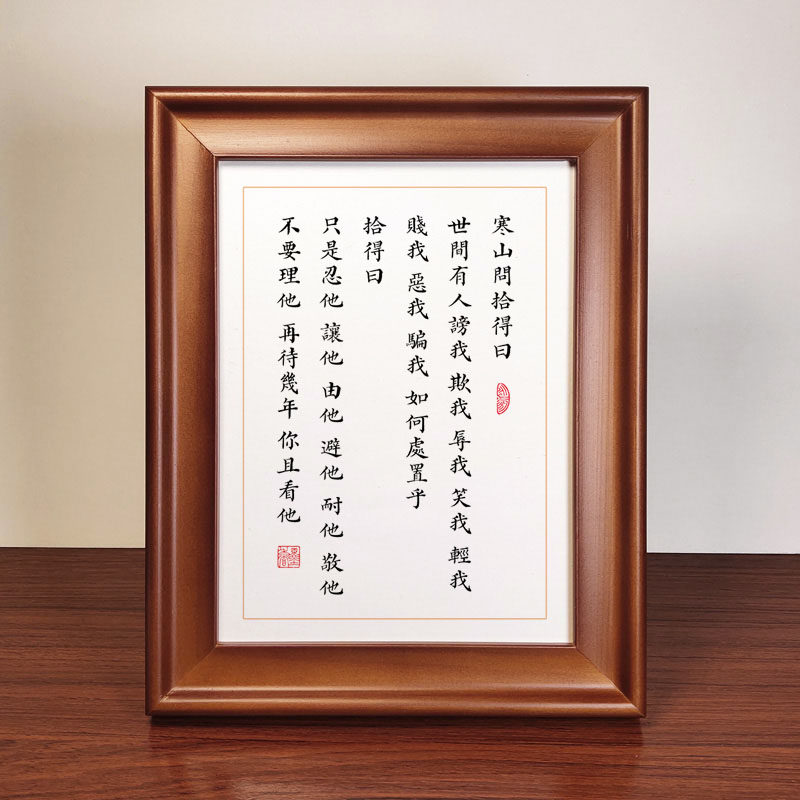 寒山問拾得曰
世間有人謗我 欺我 辱我 笑我 輕我
賤我 惡我 騙我 如何處置乎
拾得曰
只是忍他 讓他 由他 避他 耐他 敬他
不要理他 再待幾年 你且看他